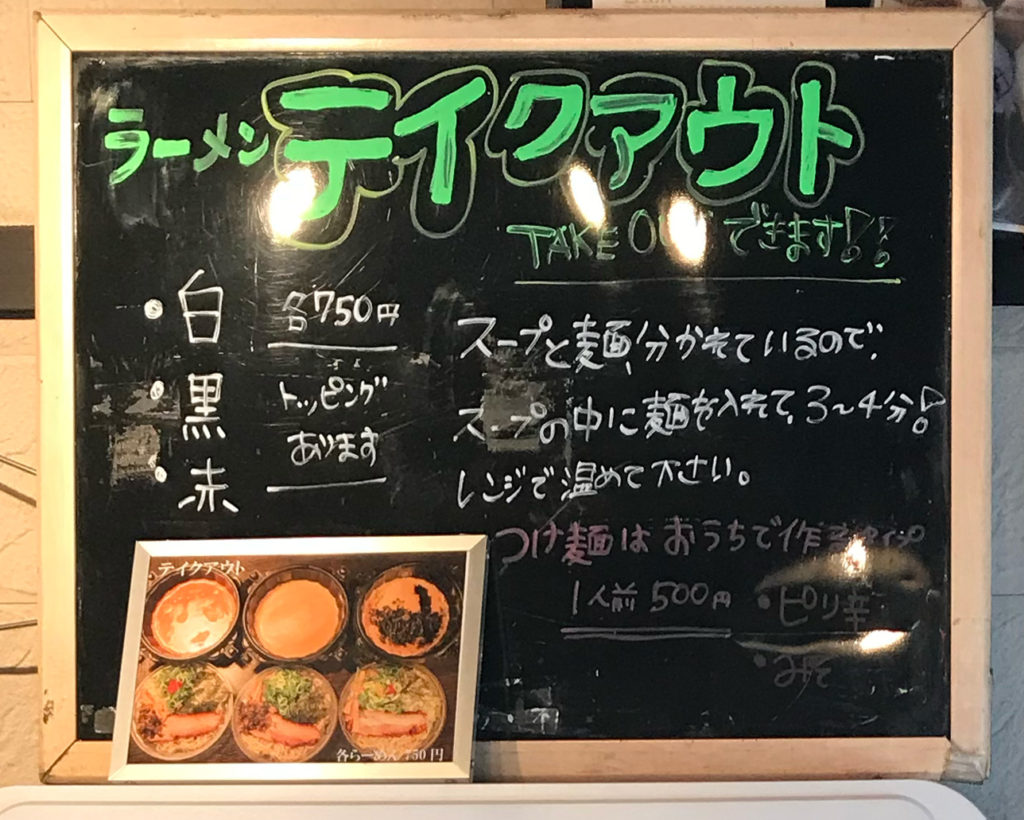 ラーメン テイクアウト
TAKE OUT できます!!
・白
・黒
・赤
各750円
トッピング
あります
スープと麺、分かれているので、
スープの中に麺を入れて、3〜4分!
レンジで温めて下さい。
つけ麺はおうちで作るタイプ
1人前 500円
・ピリ辛
・みそ
テイクアウト
各らーめん/750円